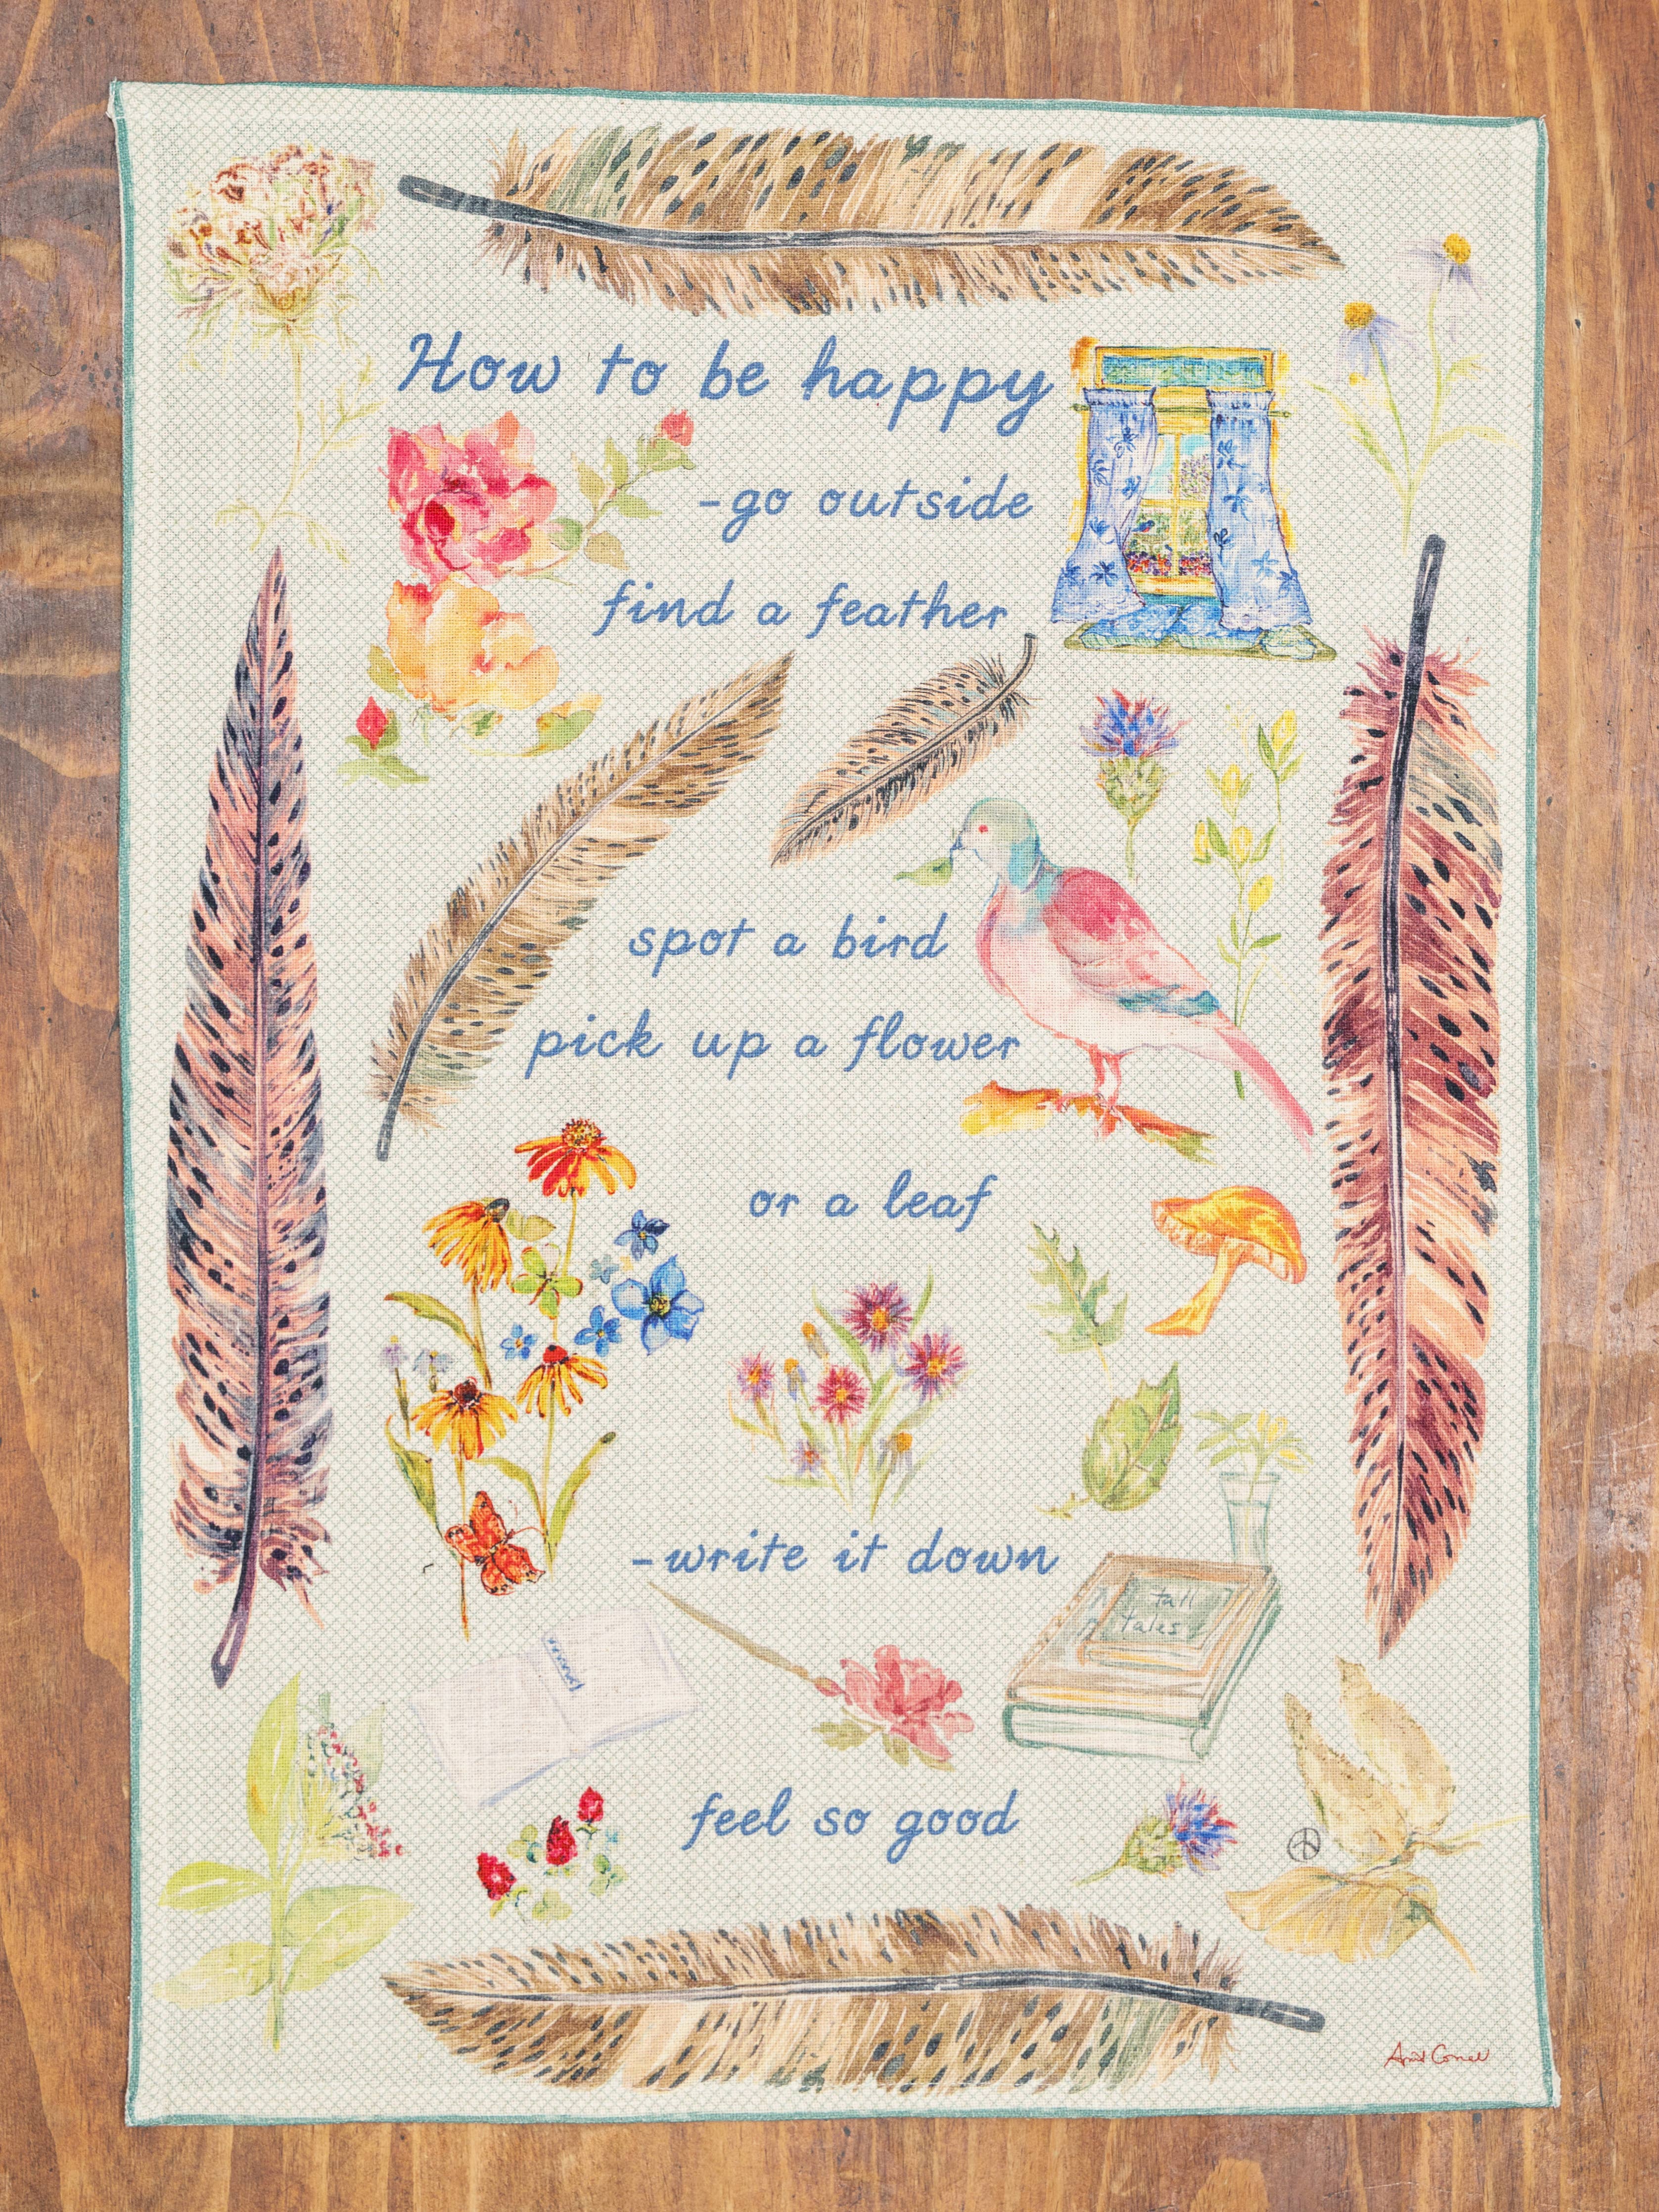 How to be happy
-go outside
find a feather
spot a bird
pick up a flower
or a leaf
-write it down
tall
tales
feel so good